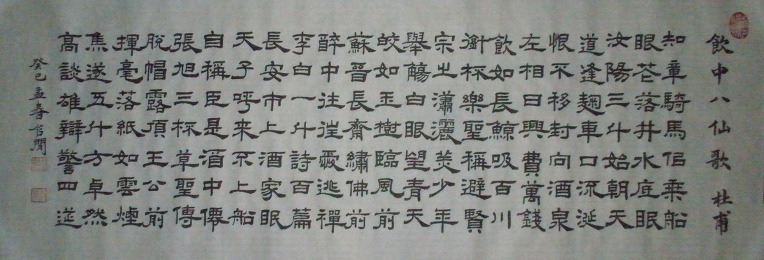 飲中八仙歌 杜甫
知章騎馬佀乘船
眼芲落井水底眠
汝陽三斗始朝天
道逢麹車口流涎
恨不移封向酒泉
左相日興費萬錢
飲如長鯨吸百川
銜杯樂聖稱避賢
宗之瀟灑美少年
舉觴白眼望青天
皎如玉樹臨風前
蘇晉長齋繡佛前
醉中往往愛逃禪
李白一斗詩百篇
長安市上酒家眠
天子呼來不上船
自稱臣是酒中僊
張旭三杯草聖傳
脫帽露頂王公前
揮毫落紙如雲煙
焦遂五斗方卓然
高談雄辯驚四筵
癸巳孟春